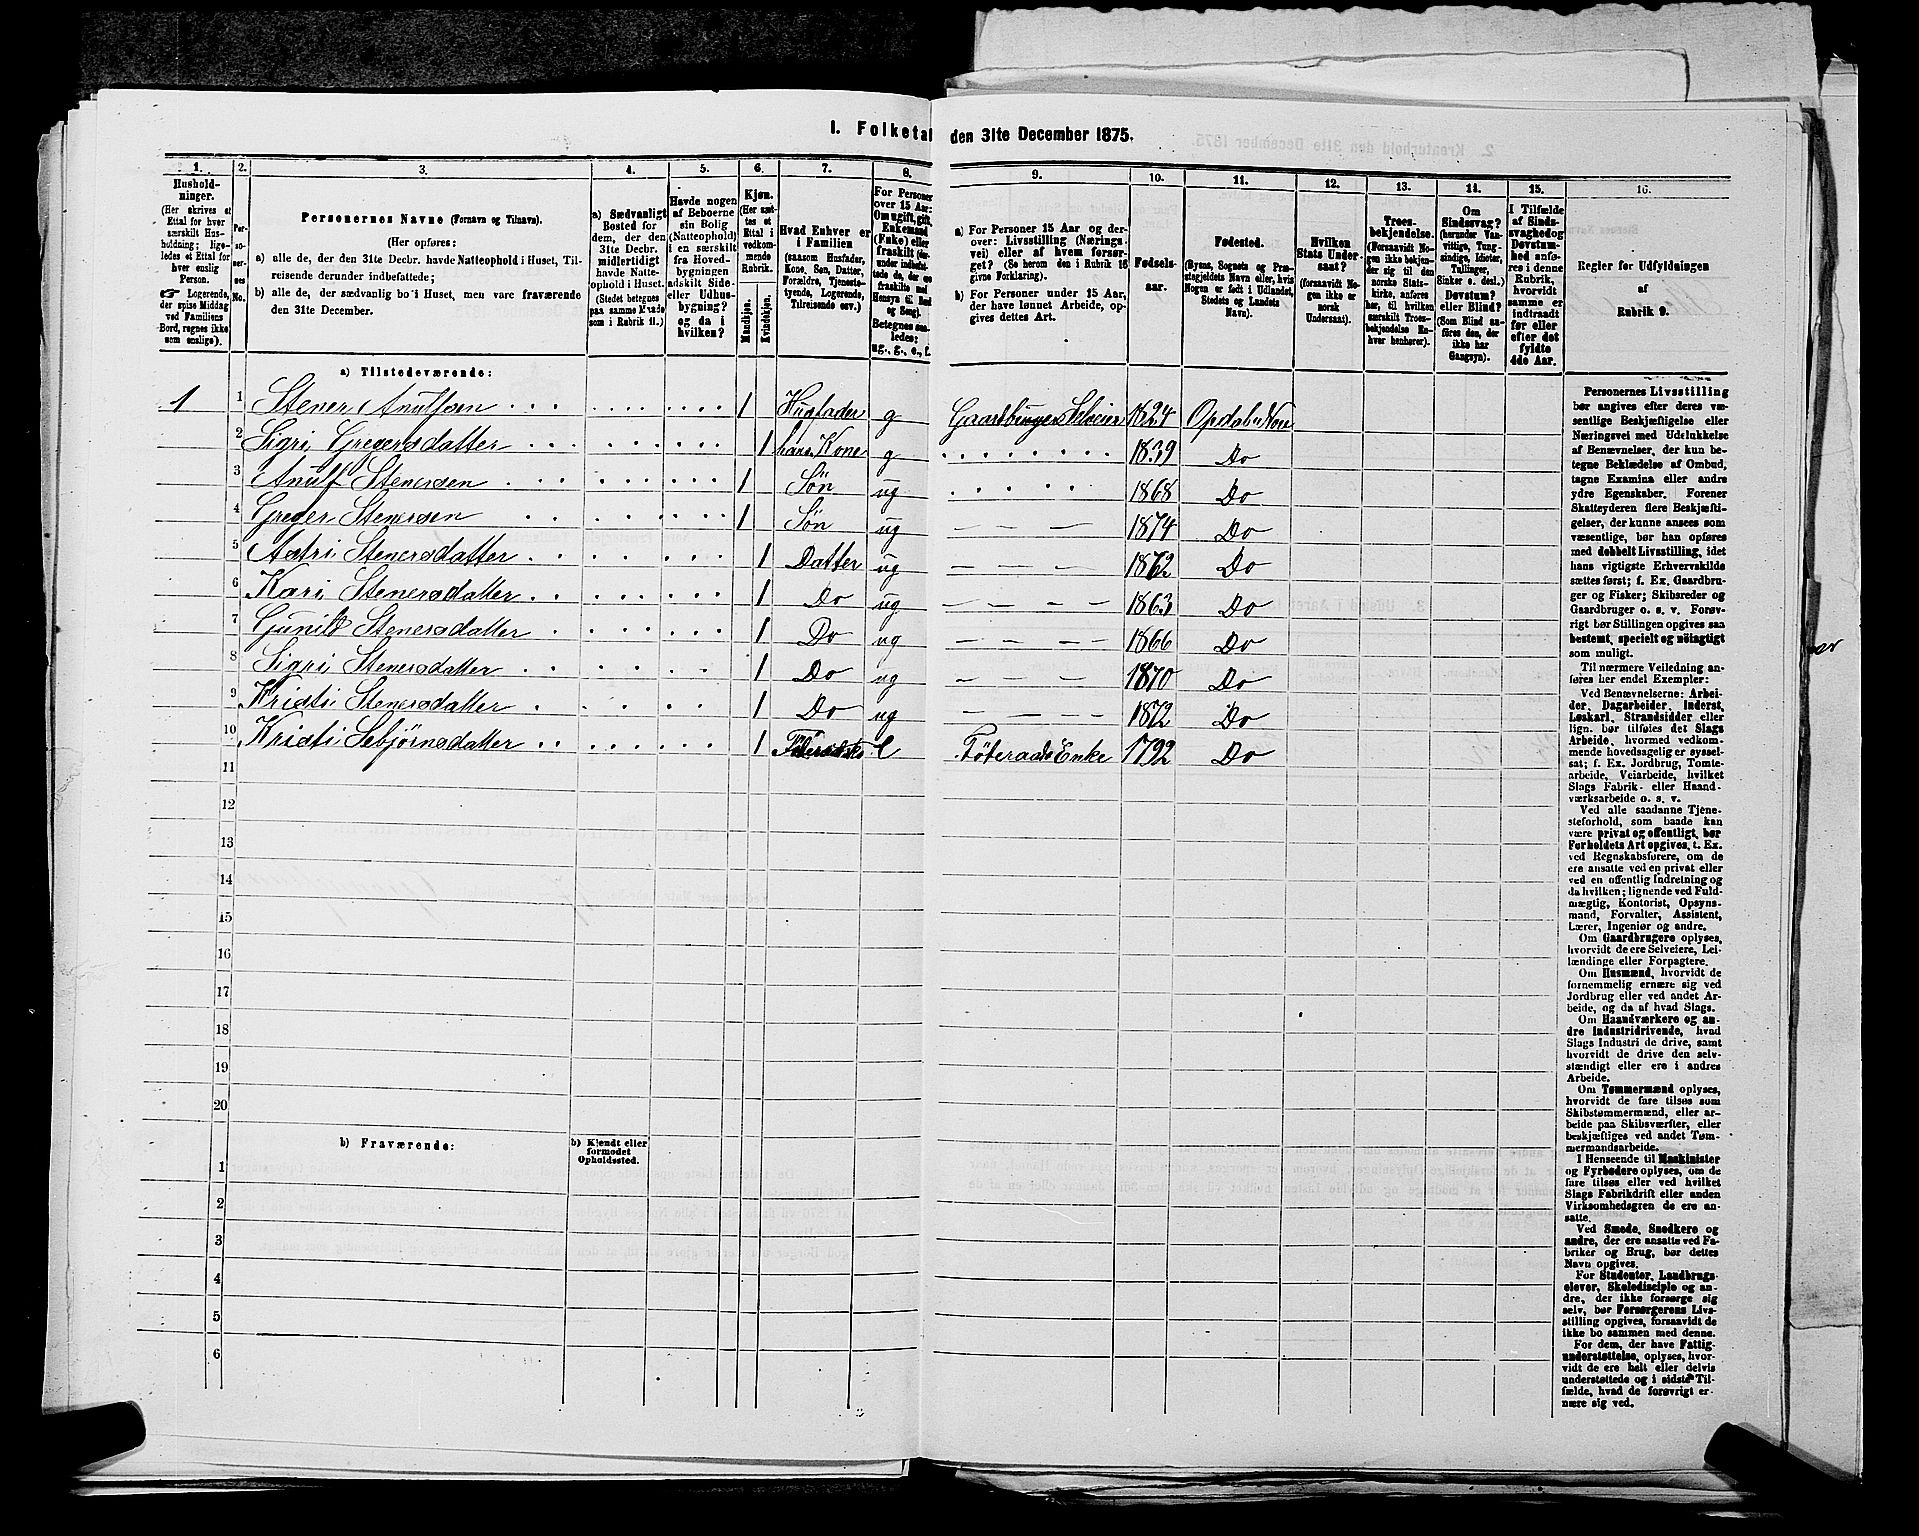 I. Folketal den 31te December 1875.
1. 2. 3. 4. 5. 6. 7. 8. 9. 10. 11. 12. 13. 14. 15. 16.
Hushold-
ninger.
(Her skrives et
Ettal for hver
særskilt Hus-
holdning; lige-
ledes et Ettal for
hver enslig
Person.
☞ Logerende,
der spise Middag
ved Familiens
Bord, regnes ikke
som enslige).
Per-
so-
ner-
nes
No.
Personernes Navne (Fornavn og Tilnavn).
(Her opføres:
a) alle de, der den 31te Decbr. havde Natteophold i Huset, Til-
reisende derunder indbefattede;
b) alle de, der sædvanlig bo i Huset, men vare fraværende
den 31te December.
a) Sædvanligt
Bosted for
dem, der den
31te Decbr.
midlertidigt
havde Natte-
ophold i Huset.
(Stedet betegnes
paa samme Maade
som i Rubrik 11.)
Havde nogen
af Beboerne
sin Bolig
(Natteophold)
i en særskilt
fra Hoved-
bygningen
adskilt Side-
eller Udhus-
bygning?
og da i
hvilken?
Kjøn.
(Her sæt-
tes et
Ettal i
vedkom-
mende
Rubrik.
Mandkjøn.
Kvindekjøn.
Hvad Enhver er
i Familien
(saasom Husfader,
Kone, Søn, Datter,
Forældre, Tjeneste-
tyende, Logerende,
Tilreisende osv.)
For Personer
over 15 Aar:
Om ugift, gift,
Enkemand
(Enke) eller
fraskilt
Betegnes saa-
ledes:
ug., g., e., f.
a) For Personer 15 Aar og der-
over: Livsstilling (Nærings-
vei) eller af hvem forsør-
get? (Se herom den i Rubrik 16
givne Forklaring).
b) For Personer under 15 Aar,
der have lønnet Arbeide, op-
gives dettes Art.
Fødsels-
aar.
Fødested.
(Byens, Sognets og Præ-
stegjeldets Navn eller, hvis
Nogen er født i Udlandet,
Stedets og Landets
Navn).
Hvilken
Stats Under-
saat?
(forsaavidt No-
gen ikke er
norsk
Undersaat).
Troes-
bekjendelse.
(Forsaavidt No-
gen ikke bekjen-
der sig til den
norske Stats-
kirke, anføres
her, til hvilken
særskilt Troes-
bekjendelse En-
hver henhører).
Om
Sindssvag?
(herunder Van-
vittige, Tung-
sindige, Idioter,
Tullinger,
Sinker o. desl.)
Døvstum?
eller Blind?
(Som Blind an-
føres den, der
ikke har
Gangsyn).
I Tilfælde
af Sinds-
svaghed og
Døvstum-
hed anfø-
res i denne
Rubrik,
hvorvidt
samme er
indtraadt
før eller
efter det
fyldte
4de Aar.
Regler for Udfyldningen
af
Rubrik 9.
a) Tilstedeværende:
1 1 Stener Anulfsen 1 Husfader g Gaardbruger Selveier 1824 Opdal i Nore
2 Sigri Gregersdatter 1 hans Kone g 1839 Do
3 Anulf Stenersen 1 Søn ug 1868 Do
4 Greger Stenersen 1 Søn ug 1874 Do
5 Astri Stenersdatter 1 Datter ug 1862 Do
6 Kari Stenersdatter 1 Do ug 1863 Do
7 Gunild Stenersdatter 1 Do ug 1866 Do
8 Sigri Stenersdatter 1 Do ug 1870 Do
9 Kristi Stenersdatter 1 Do ug 1872 Do
10 Kristi Sebjørnsdatter 1 e Føderaads Enke 1792 Do
11
12
13
14
15
16
17
18
19
20
b) Fraværende:
b) Kjendt eller
formodet
Opholdssted.
1
2
3
4
5
6
Personernes Livsstilling
bør angives efter deres væ-
sentlige Beskjæftigelse eller
Næringsvei med Udelukkelse
af Benævnelser, der kun be-
tegne Beklædelse af Ombud,
tagne Examina eller andre
ydre Egenskaber. Forener
Skatteyderen flere Beskjæfti-
gelser, der kunne ansees som
væsentlige, bør han opføres
med dobbelt Livsstilling, idet
hans vigtigste Erhvervskilde
sættes først; f. Ex. Gaardbru-
ger og Fisker; Skibsreder og
Gaardbruger o. s. v. Forøv-
rigt bør Stillingen opgives saa
bestemt, specielt og nöiagtigt
som muligt.
Til nærmere Veiledning an-
føres her endel Exempler:
Ved Benævnelserne: Arbei-
der, Dagarbeider, Inderst,
Løskarl, Strandsidder eller
lign. bør tilføies det Slags
Arbeide, hvormed vedkom-
mende hovedsagelig er syssel-
sat; f. Ex. Jordbrug, Tomte-
arbeide, Veiarbeide, hvilket
Slags Fabrik- eller Haand-
værksarbeide o. s. v.
Ved alle saadanne Tjene-
steforhold, som baade kan
være privat og offentligt, bør
Forholdets Art opgives, t. Ex.
ved Regnskabsførere, om de
ere ansatte ved en privat eller
ved en offentlig Indretning og
da hvilken; lignende ved Fuld-
mægtig, Kontorist, Opsyns-
mand, Forvalter, Assistent,
Lærer, Ingeniør og andre.
Om Gaardbrugere oplyses,
hvorvidt de ere Selveiere, Lei-
lændinge eller Forpagtere.
Om Husmænd, hvorvidt de
fornemmelig ernære sig ved
Jordbrug eller ved andet Ar-
beide, og da af hvad Slags.
Om Haandværkere og an-
dre Industridrivende, hvad
Slags Industri de drive, samt
hvorvidt de drive den selv-
stændigt eller ere i andres
Arbeide.
Om Tømmermænd oplyses,
hvorvidt de fare tilsøs som
Skibstømmermænd, eller ar-
beide paa Skibsværfter, eller
beskjæftiges ved andet Tøm-
mermandsarbeide.
I Henseende til Maskinister
og Fyrbødere oplyses, om de
fare tilsøs eller ved hvilket
Slags Fabrikdrift eller anden
Virksomhedsgren de ere an-
satte.
Ved Smede, Snedkere og
andre, der ere ansatte ved Fa-
briker og Brug, bør dettes
Navn opgives.
For Studenter, Landbrugs-
elever, Skoledisciple og an-
dre, der ikke forsørge sig
selv, bør Forsørgerens Livs-
stilling opgives, forsaavidt de
ikke bo sammen med denne.
For dem, der have Fattig-
understøttelse, oplyses, hvor-
vidt de ere helt eller delvis
understøttede og i sidste Til-
fælde, hvad de forøvrigt er-
nære sig ved.